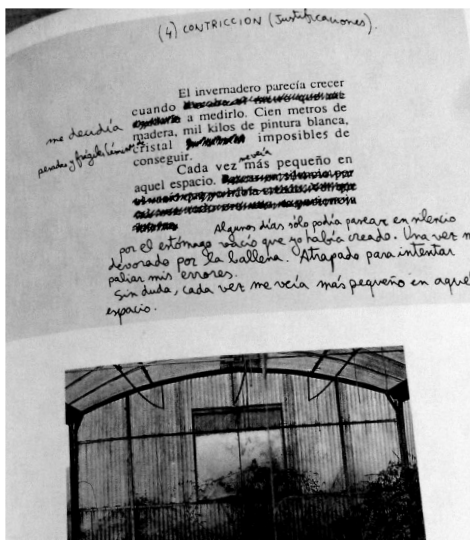 (4) CONTRICCION (Justificaciones).
El invernadero parecía crecer
cuando
me decidía
a medirlo. Cien metros de
madera, mil kilos de pintura blanca,
cristal
imposibles de
conseguir.
Cada vez me veía más pequeño en
aquel espacio.
Algunos días sólo podía pasear en silencio
por el estómago vacío que yo había creado. Una vez m
devorado por la ballena. Atrapado para intentar
paliar mis errores.
Sin duda, cada vez me veía más pequeño en aque
espacio.